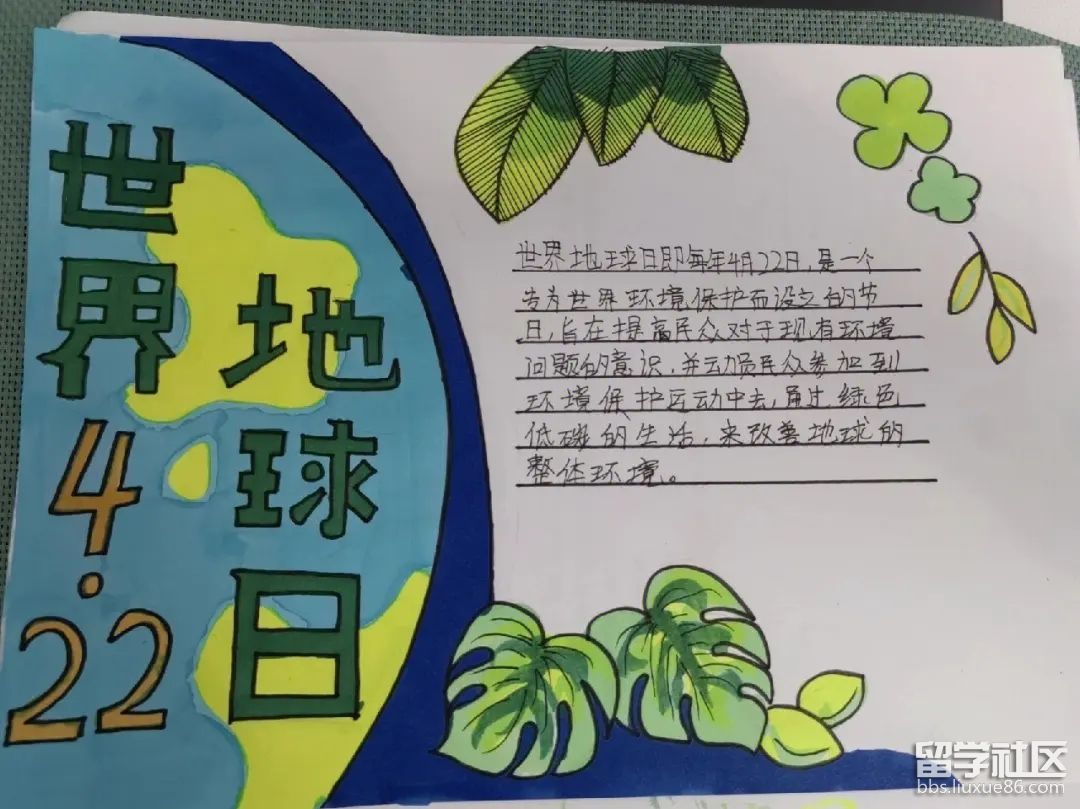 世界
地球日
4.22
世界地球日即每年4月22日，是一个
专为世界环境保护而设立的节
日，旨在提高民众对于现有环境
问题的意识，并动员民众参加到
环境保护运动中去，通过绿色
低碳的生活，来改善地球的
整体环境。
留学社区
bbs.liuxue86.com